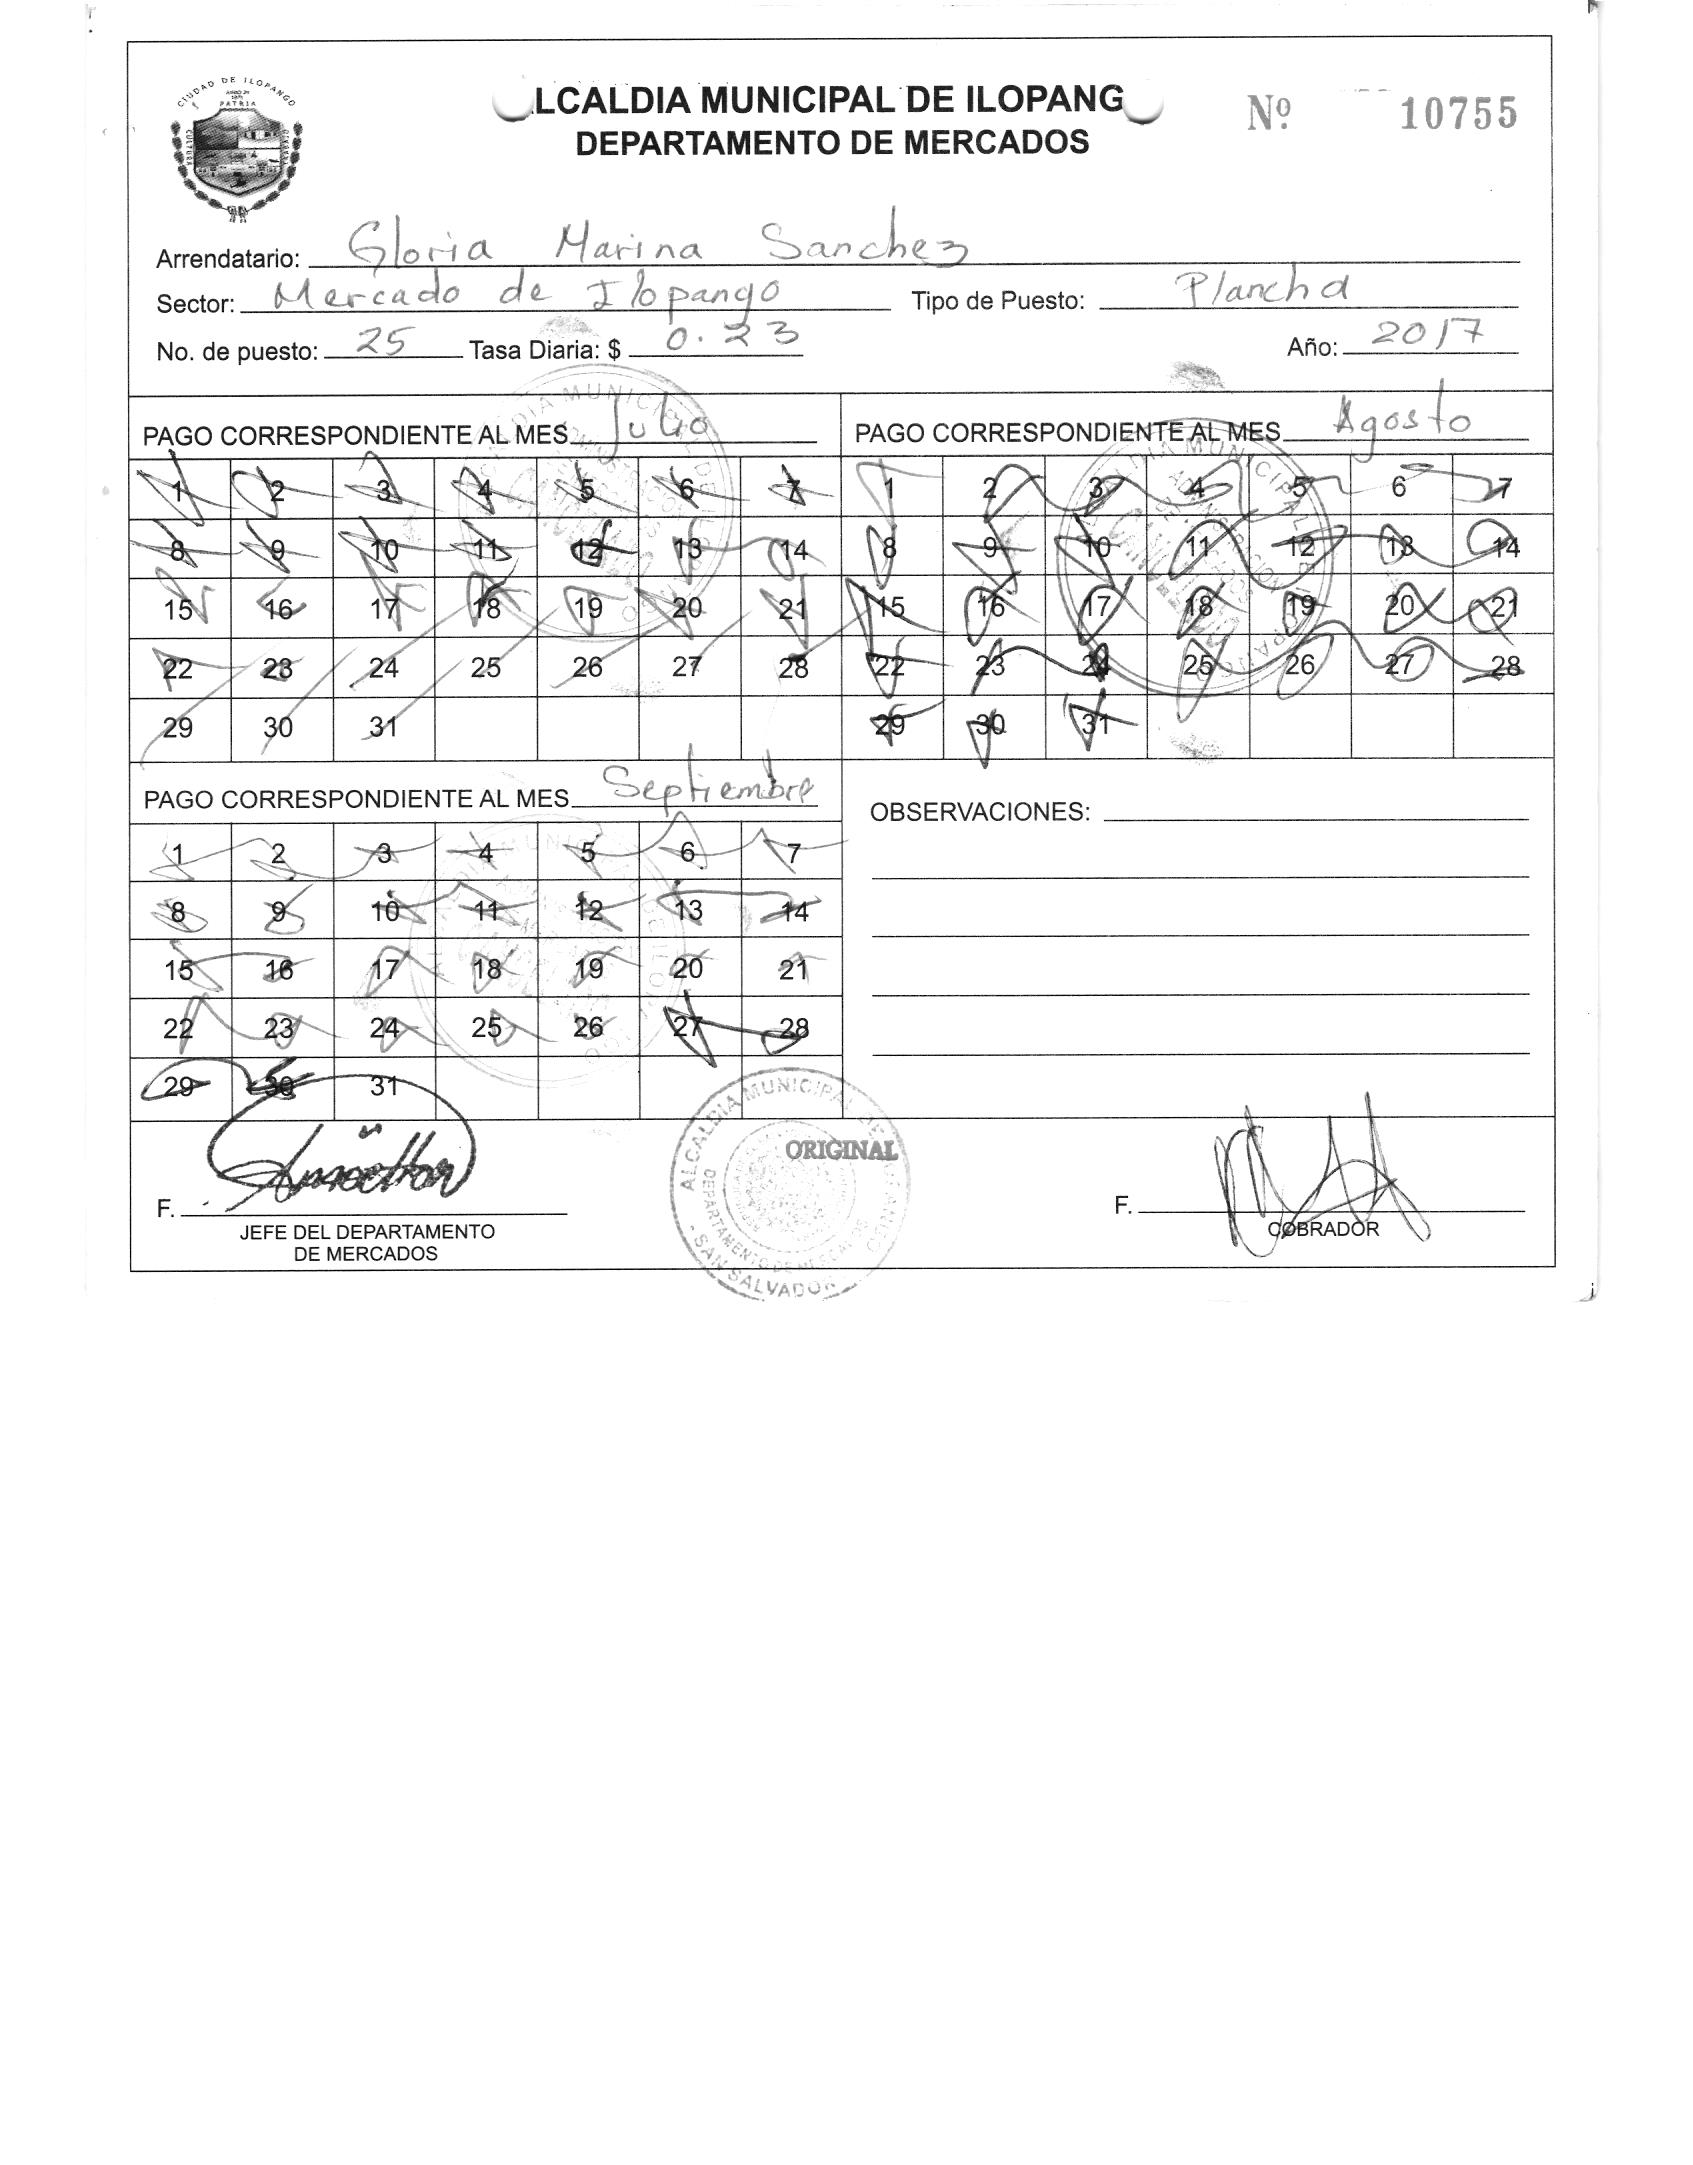 CIUDAD DE ILOPANGO
PATRIA
CULTURA
LCALDIA MUNICIPAL DE ILOPANG
DEPARTAMENTO DE MERCADOS
Nº 10755
Arrendatario: Gloria Marina Sanchez
Sector: Mercado de Ilopango Tipo de Puesto: Plancha
No. de puesto: 25 Tasa Diaria: $ 0.23 Año: 2017
PAGO CORRESPONDIENTE AL MES Julio
1 2 3 4 5 6 7
8 9 10 11 12 13 14
15 16 17 18 19 20 21
22 23 24 25 26 27 28
29 30 31
PAGO CORRESPONDIENTE AL MES Agosto
1 2 3 4 5 6 7
8 9 10 11 12 13 14
15 16 17 18 19 20 21
22 23 24 25 26 27 28
29 30 31
PAGO CORRESPONDIENTE AL MES Septiembre
1 2 3 4 5 6 7
8 9 10 11 12 13 14
15 16 17 18 19 20 21
22 23 24 25 26 27 28
29 30 31
OBSERVACIONES:
F.
JEFE DEL DEPARTAMENTO
DE MERCADOS
ALCALDIA MUNICIPAL DE
DEPARTAMENTO DE MERCADOS
SAN SALVADOR
ORIGINAL
F.
COBRADOR